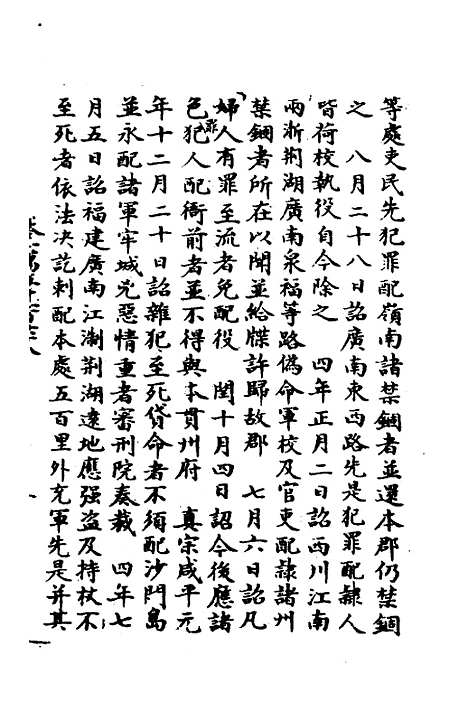 等處吏民先犯罪配嶺南諸禁錮者並還本郡仍禁錮
之　八月二十八日詔廣南東西路先是犯罪配隸人
皆荷校執役自今除之　四年正月二日詔西川江南
兩浙荆湖廣南泉福等路偽命軍校及官吏配隸諸州
禁錮者所在以聞並給牒許歸故郡　七月六日詔凡
婦人有罪至流者免配役　閏十月四日詔今後應諸
色犯罪人配衙前者並不得與本貫州府　真宗咸平元
年十二月二十日詔雜犯至死貸命者不須配沙門島
並永配諸軍牢城兇惡情重者審刑院奏裁　四年七
月五日詔福建廣南江淛荆湖遠地應强盜及持杖不
至死者依法决訖刺配本處五百里外充軍先是并其